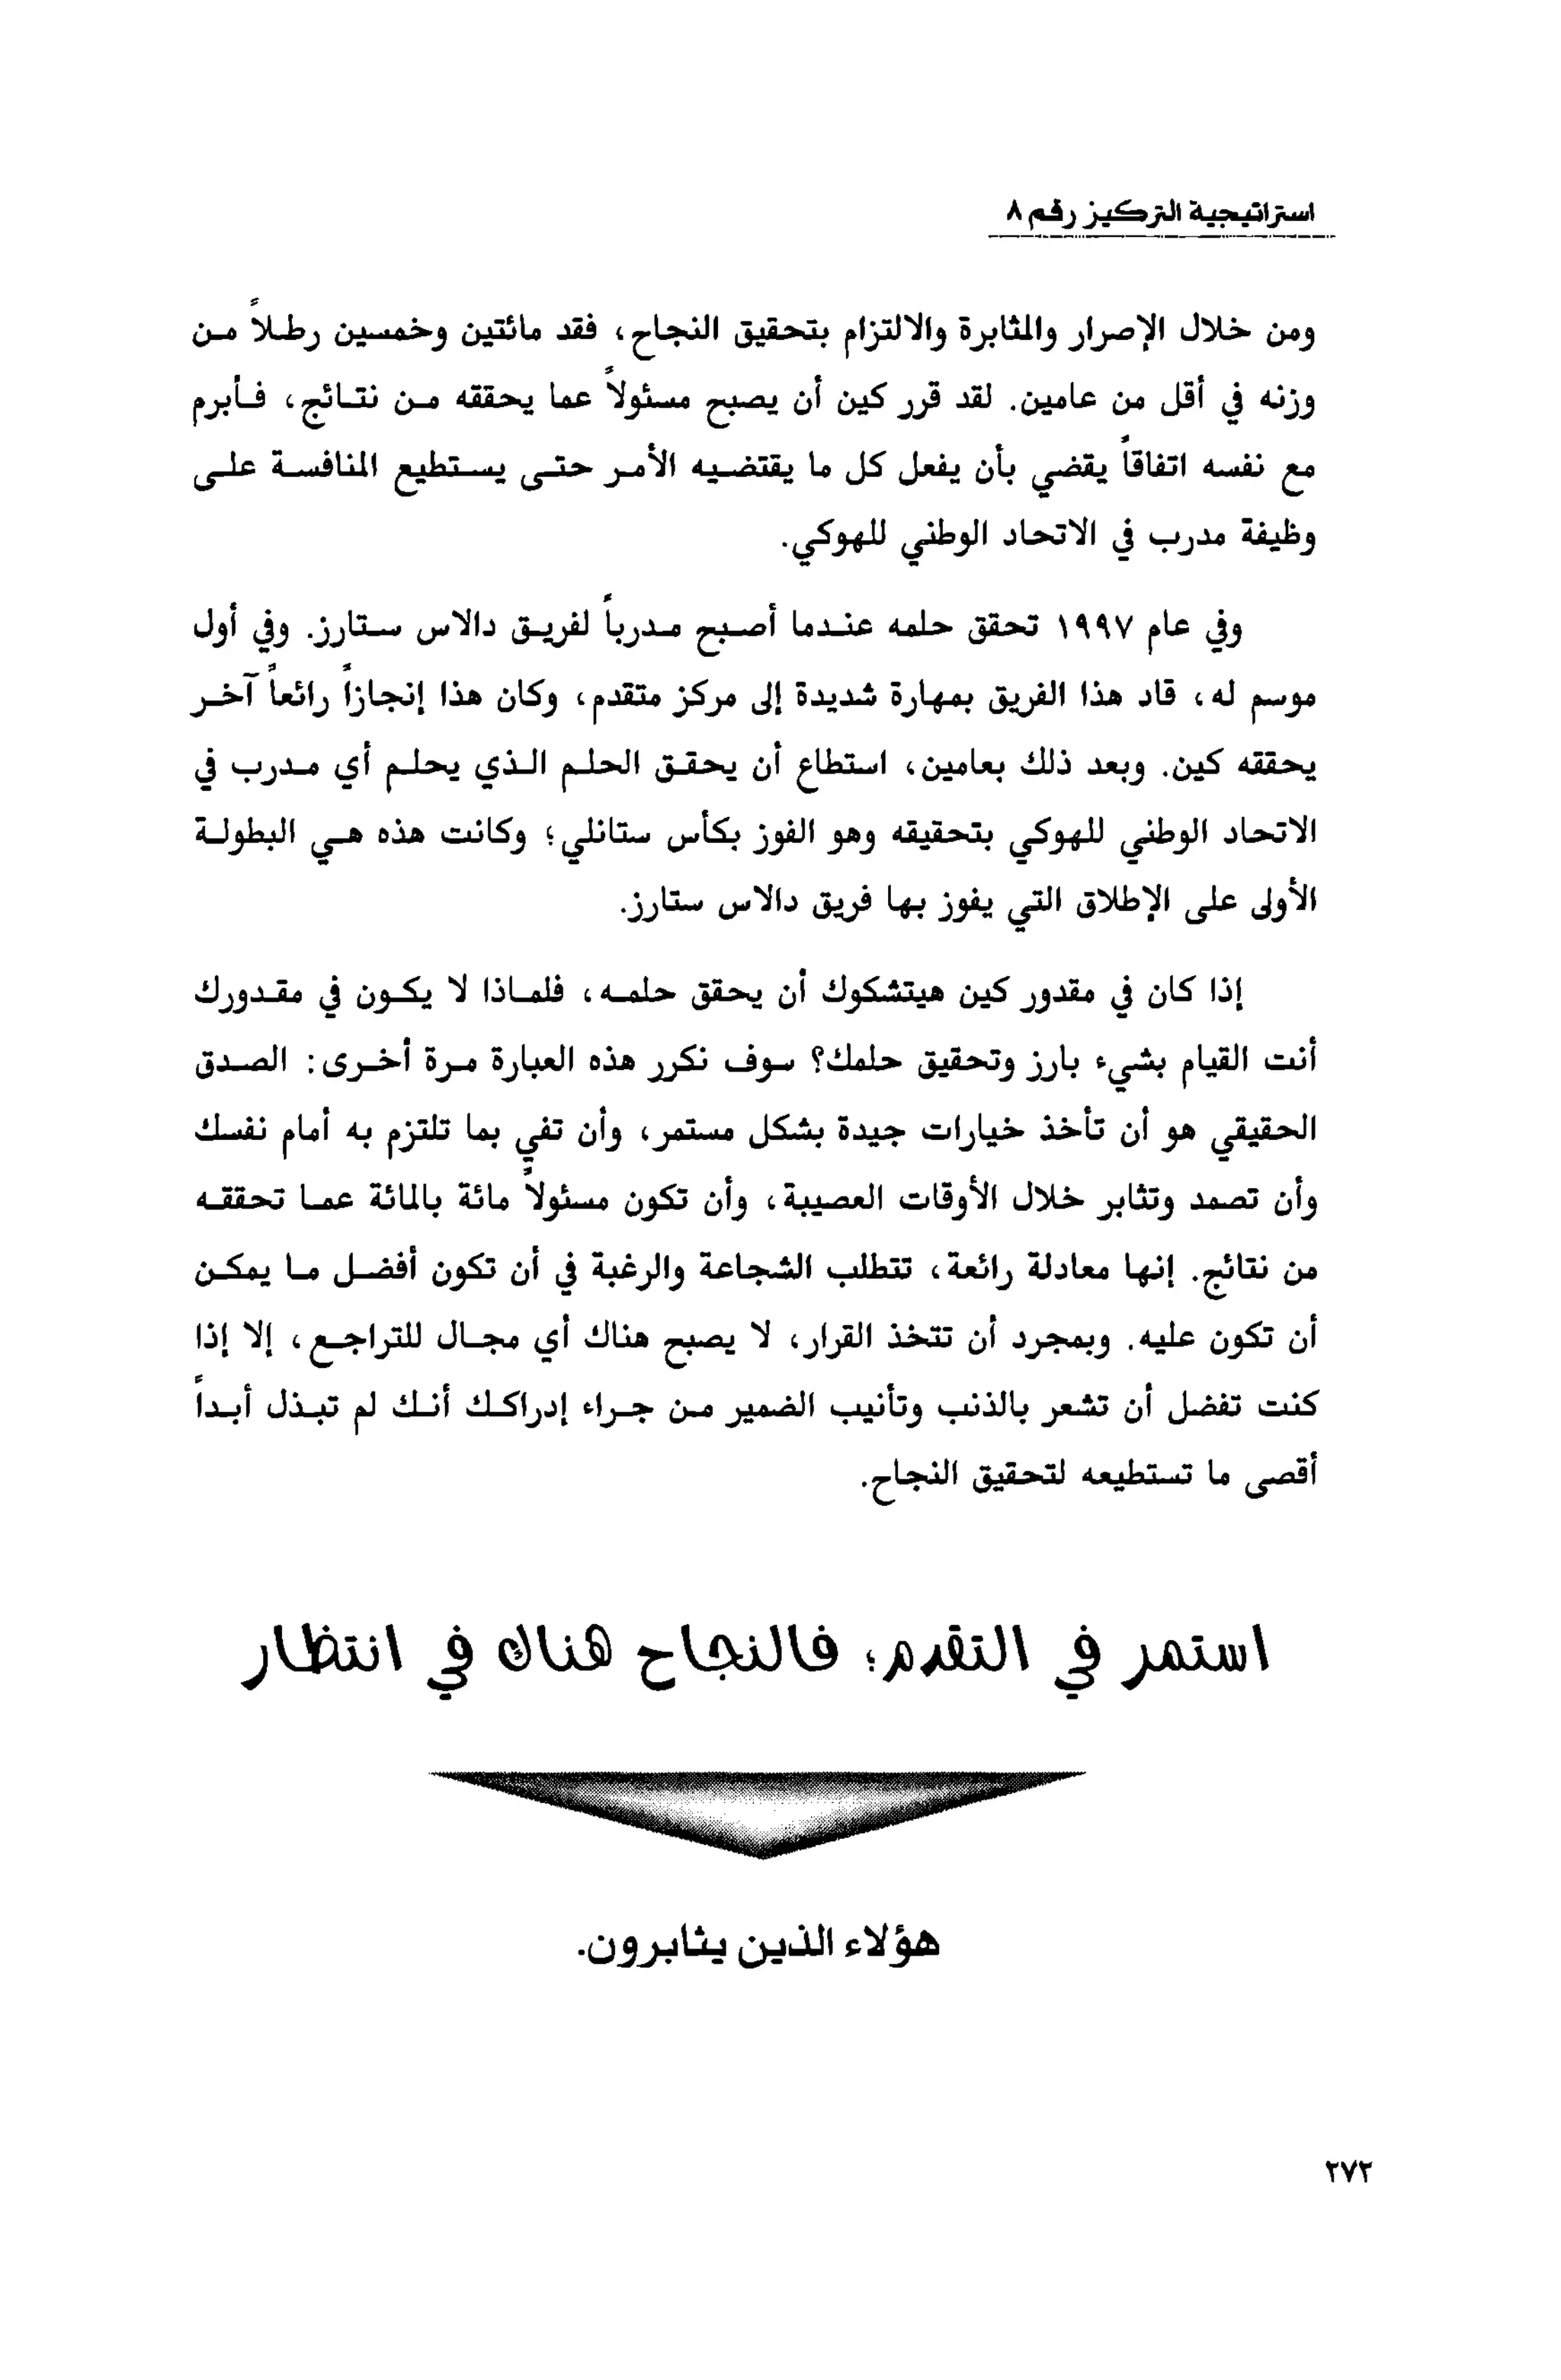 استراتيجية التركيز رقم ٨
ومن خلال الإصرار والمثابرة والالتزام بتحقيق النجاح، فقد مائتين وخمسين رطلاً من
وزنه في أقل من عامين. لقد قرر كين أن يصبح مسئولاً عما يحققه من نتائج، فأبرم
مع نفسه اتفاقاً يقضي بأن يفعل كل ما يقتضيه الأمر حتى يستطيع المنافسة على
وظيفة مدرب في الاتحاد الوطني للهوكي.
وفي عام ١٩٩٧ تحقق حلمه عندما أصبح مدرباً لفريق دالاس ستارز. وفي أول
موسم له، قاد هذا الفريق بمهارة شديدة إلى مركز متقدم، وكان هذا إنجازاً رائعاً آخر
يحققه كين. وبعد ذلك بعامين، استطاع أن يحقق الحلم الذي يحلم أي مدرب في
الاتحاد الوطني للهوكي بتحقيقه وهو الفوز بكأس ستانلي؛ وكانت هذه هي البطولة
الأولى على الإطلاق التي يفوز بها فريق دالاس ستارز.
إذا كان في مقدور كين هيتشكوك أن يحقق حلمه، فلماذا لا يكون في مقدورك
أنت القيام بشيء بارز وتحقيق حلمك؟ سوف نكرر هذه العبارة مرة أخرى: الصدق
الحقيقي هو أن تأخذ خيارات جيدة بشكل مستمر، وأن تفي بما تلتزم به أمام نفسك
وأن تصمد وتثابر خلال الأوقات العصيبة، وأن تكون مسئولاً مائة بالمائة عما تحققه
من نتائج. إنها معادلة رائعة، تتطلب الشجاعة والرغبة في أن تكون أفضل ما يمكن
أن تكون عليه. وبمجرد أن تتخذ القرار، لا يصبح هناك أي مجال للتراجع، إلا إذا
كنت تفضل أن تشعر بالذنب وتأنيب الضمير من جراء إدراكك أنك لم تبذل أبداً
أقصى ما تستطيعه لتحقيق النجاح.
استمر في التقدم؛ فالنجاح هناك في انتظار
هؤلاء الذين يثابرون.
٢٧٢